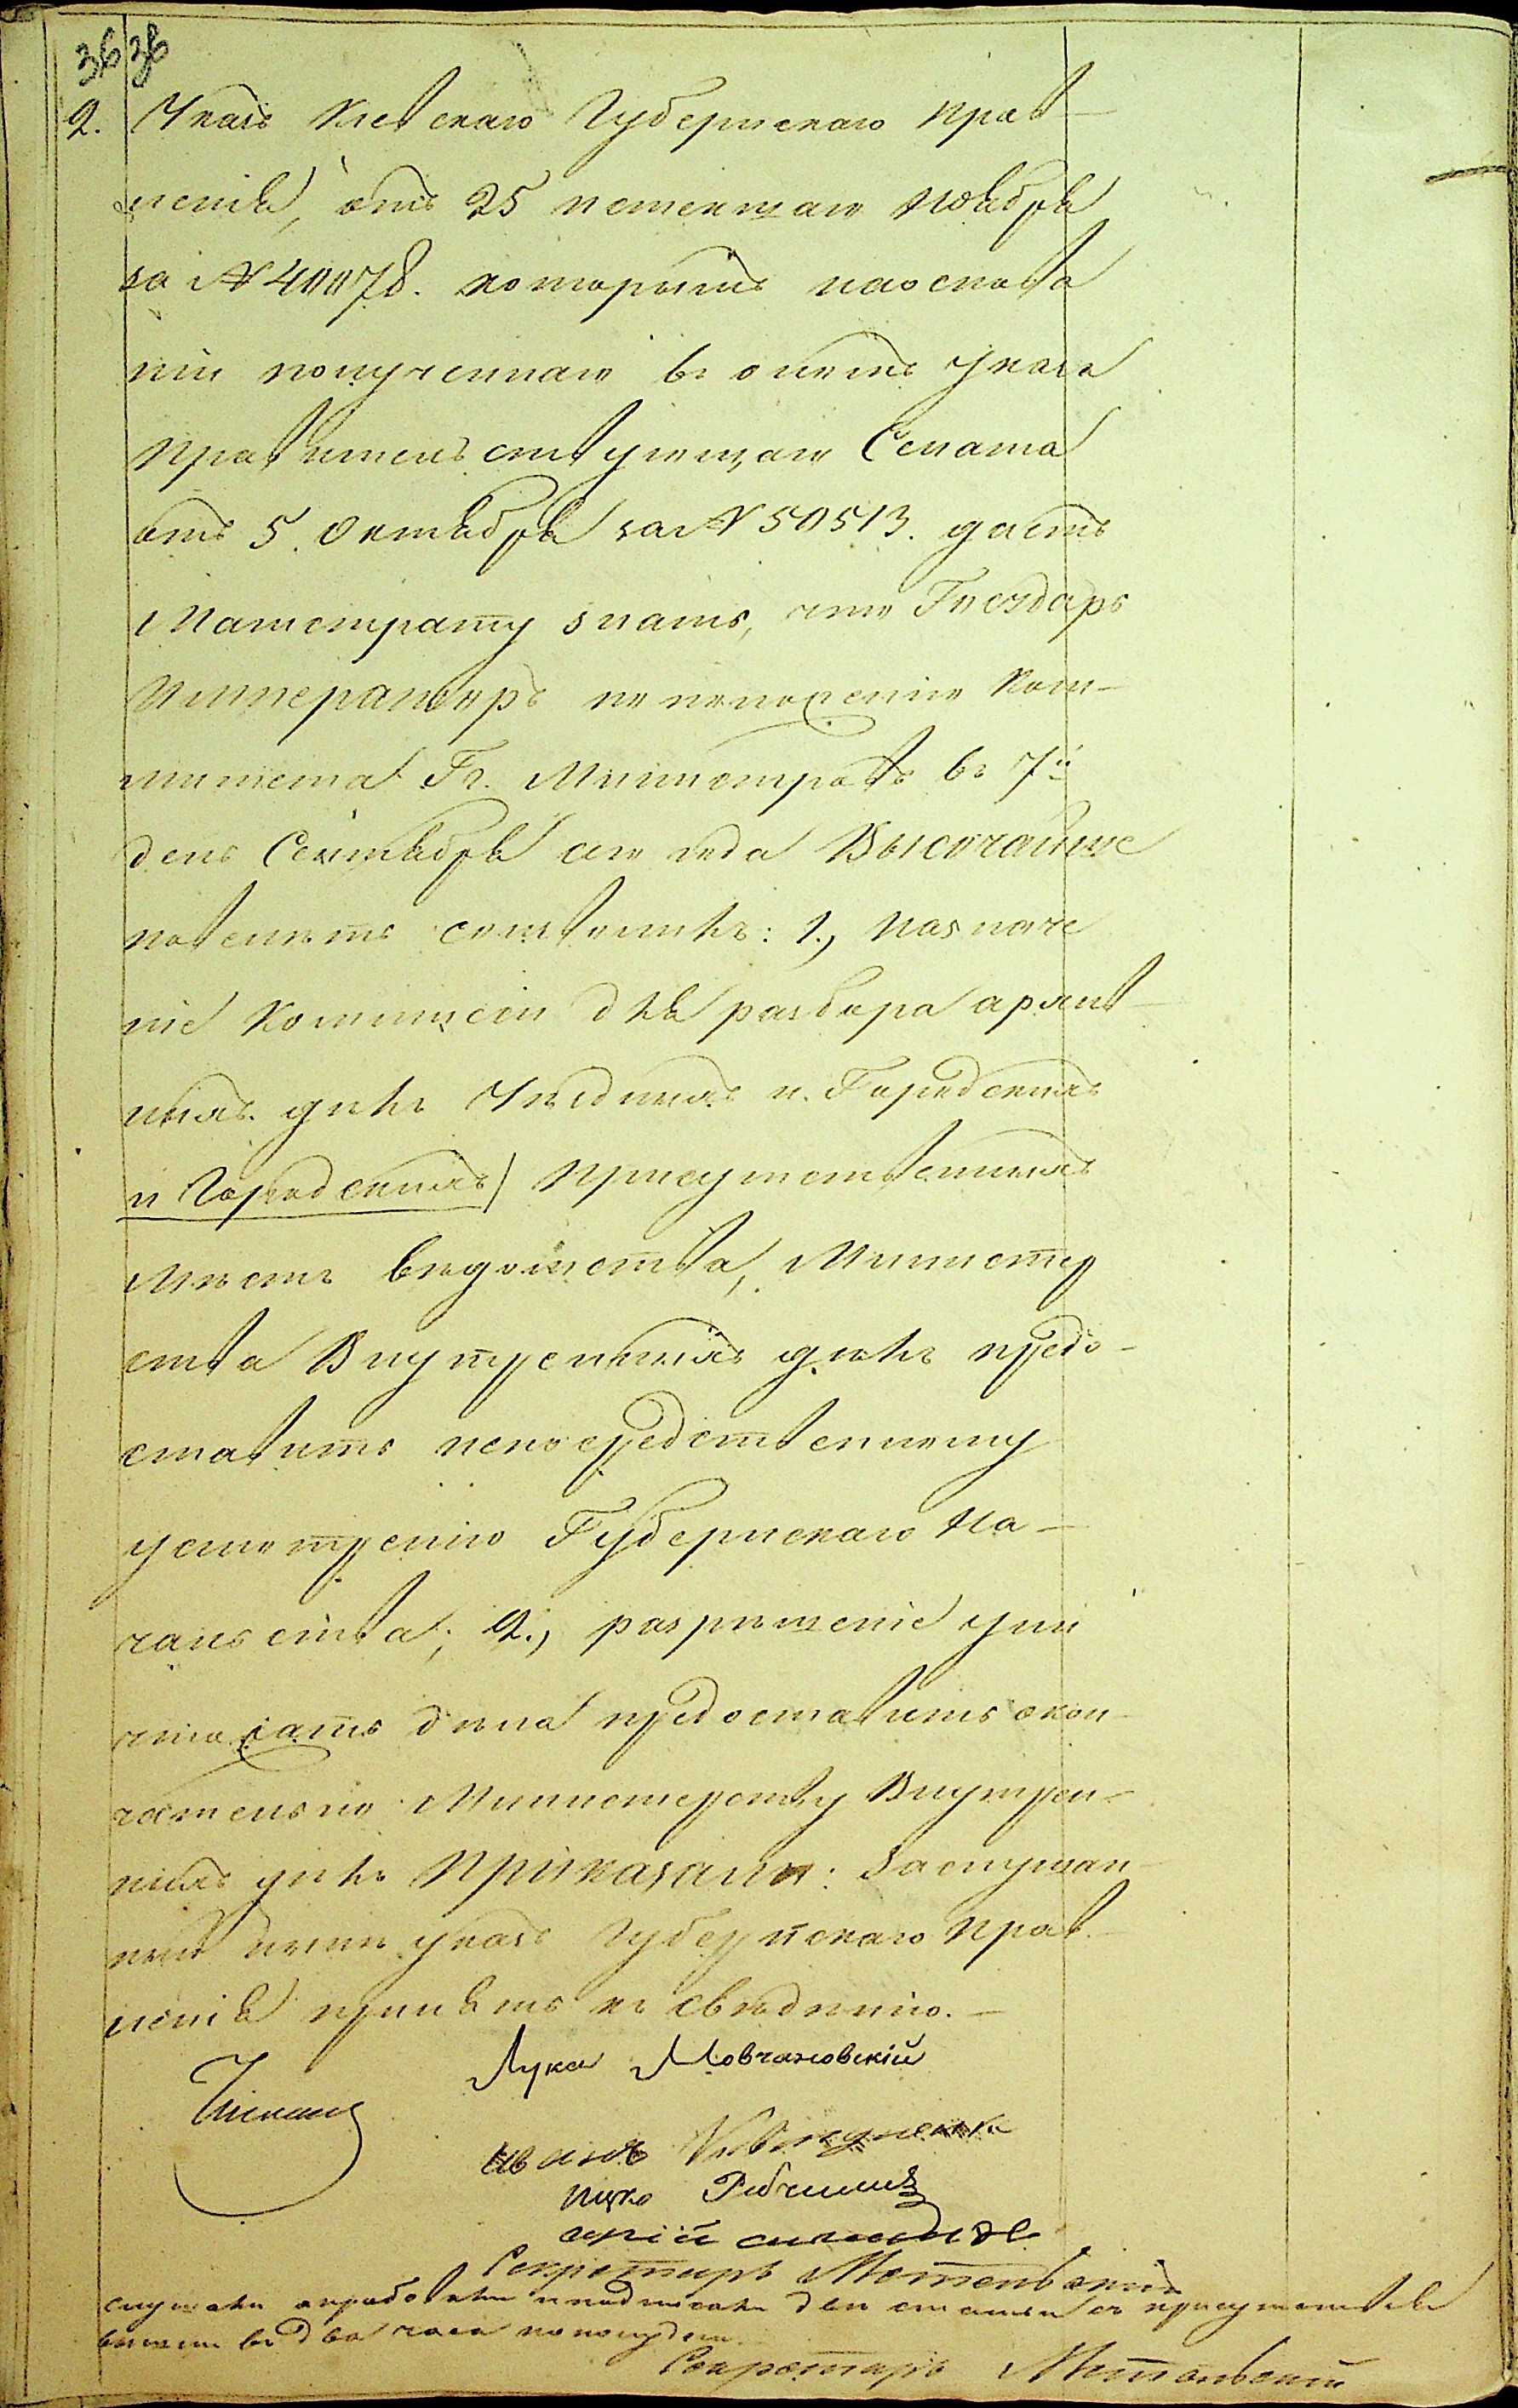 36 38
2. Указъ Кіевскаго Губернскаго Прав-
ленія, отъ 25 истекшаго Ноября
за № 40078. которымъ на основа
ніи полученнаго въ ономъ указа
Правительствующаго Сената
отъ 5. Октября за № 50513. даетъ
Магистрату знать, что Государь
Императоръ по положенію Ком-
митета Гг. Министровъ въ 7й
день Сентября сего года Высочайше
повелѣть соизволилъ: 1., Назначе
ніе Коммисіи для разбора архив-
ныхъ дѣлъ Уѣздныхъ и Городскихъ
и Городскихъ) Присутственныхъ
Мѣстъ вѣдомства, Министер
ства Внутреннихъ дѣлъ предо-
ставить непосредственному
усмотренію Губернскаго На-
чальства; 2., разрѣшеніе уни
чтожать дѣла предоставить окон-
чательно Министерству Внутрен-
нихъ дѣлъ Приказали: Заслушан-
ный указъ Губернскаго Прав-
ленія принять къ свѣденію.-
Лука Мовчановскій
Иванъ
Секретарь
слушали и подписали две статьи съ присутствія
вышли въ два часа по полудни.
Секретарь